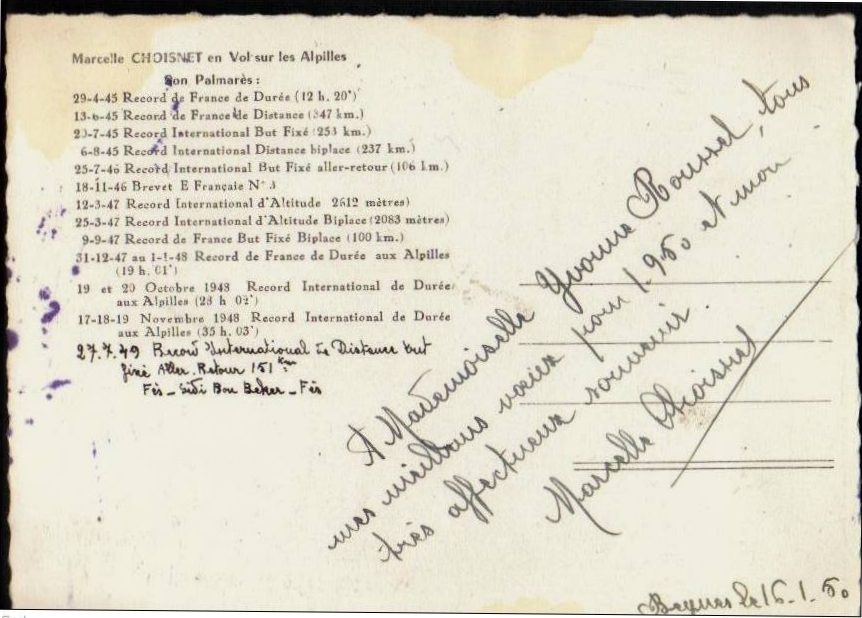 Marcelle CHOISNET en Vol sur les Alpilles
Son Palmarès :
29-4-45 Record de France de Durée (12 h. 20')
13-6-45 Record de France de Distance (347 km.)
20-7-45 Record International But Fixé (253 km.)
6-8-45 Record International Distance biplace (237 km.)
25-7-46 Record International But Fixé aller-retour (106 km.)
18-11-46 Brevet E Français N° 3
12-3-47 Record International d'Altitude 2612 mètres)
25-3-47 Record International d'Altitude Biplace (2083 mètres)
9-9-47 Record de France But Fixé Biplace (100 km.)
31-12-47 au 1-1-48 Record de France de Durée aux Alpilles
(19 h. 01')
19 et 20 Octobre 1948 Record International de Durée
aux Alpilles (28 h 02')
17-18-19 Novembre 1948 Record International de Durée
aux Alpilles (35 h. 03')
27.7.49 Record International de Distance but
fixé Aller. Retour 151 km
Fès - Sidi Bou Beker - Fès
A Mademoiselle Yvonne Roussel, tous
mes meilleurs voeux pour 1.950 et mon
très affectueux souvenir.
Marcelle Choisnet
Beynes le 16.1.50